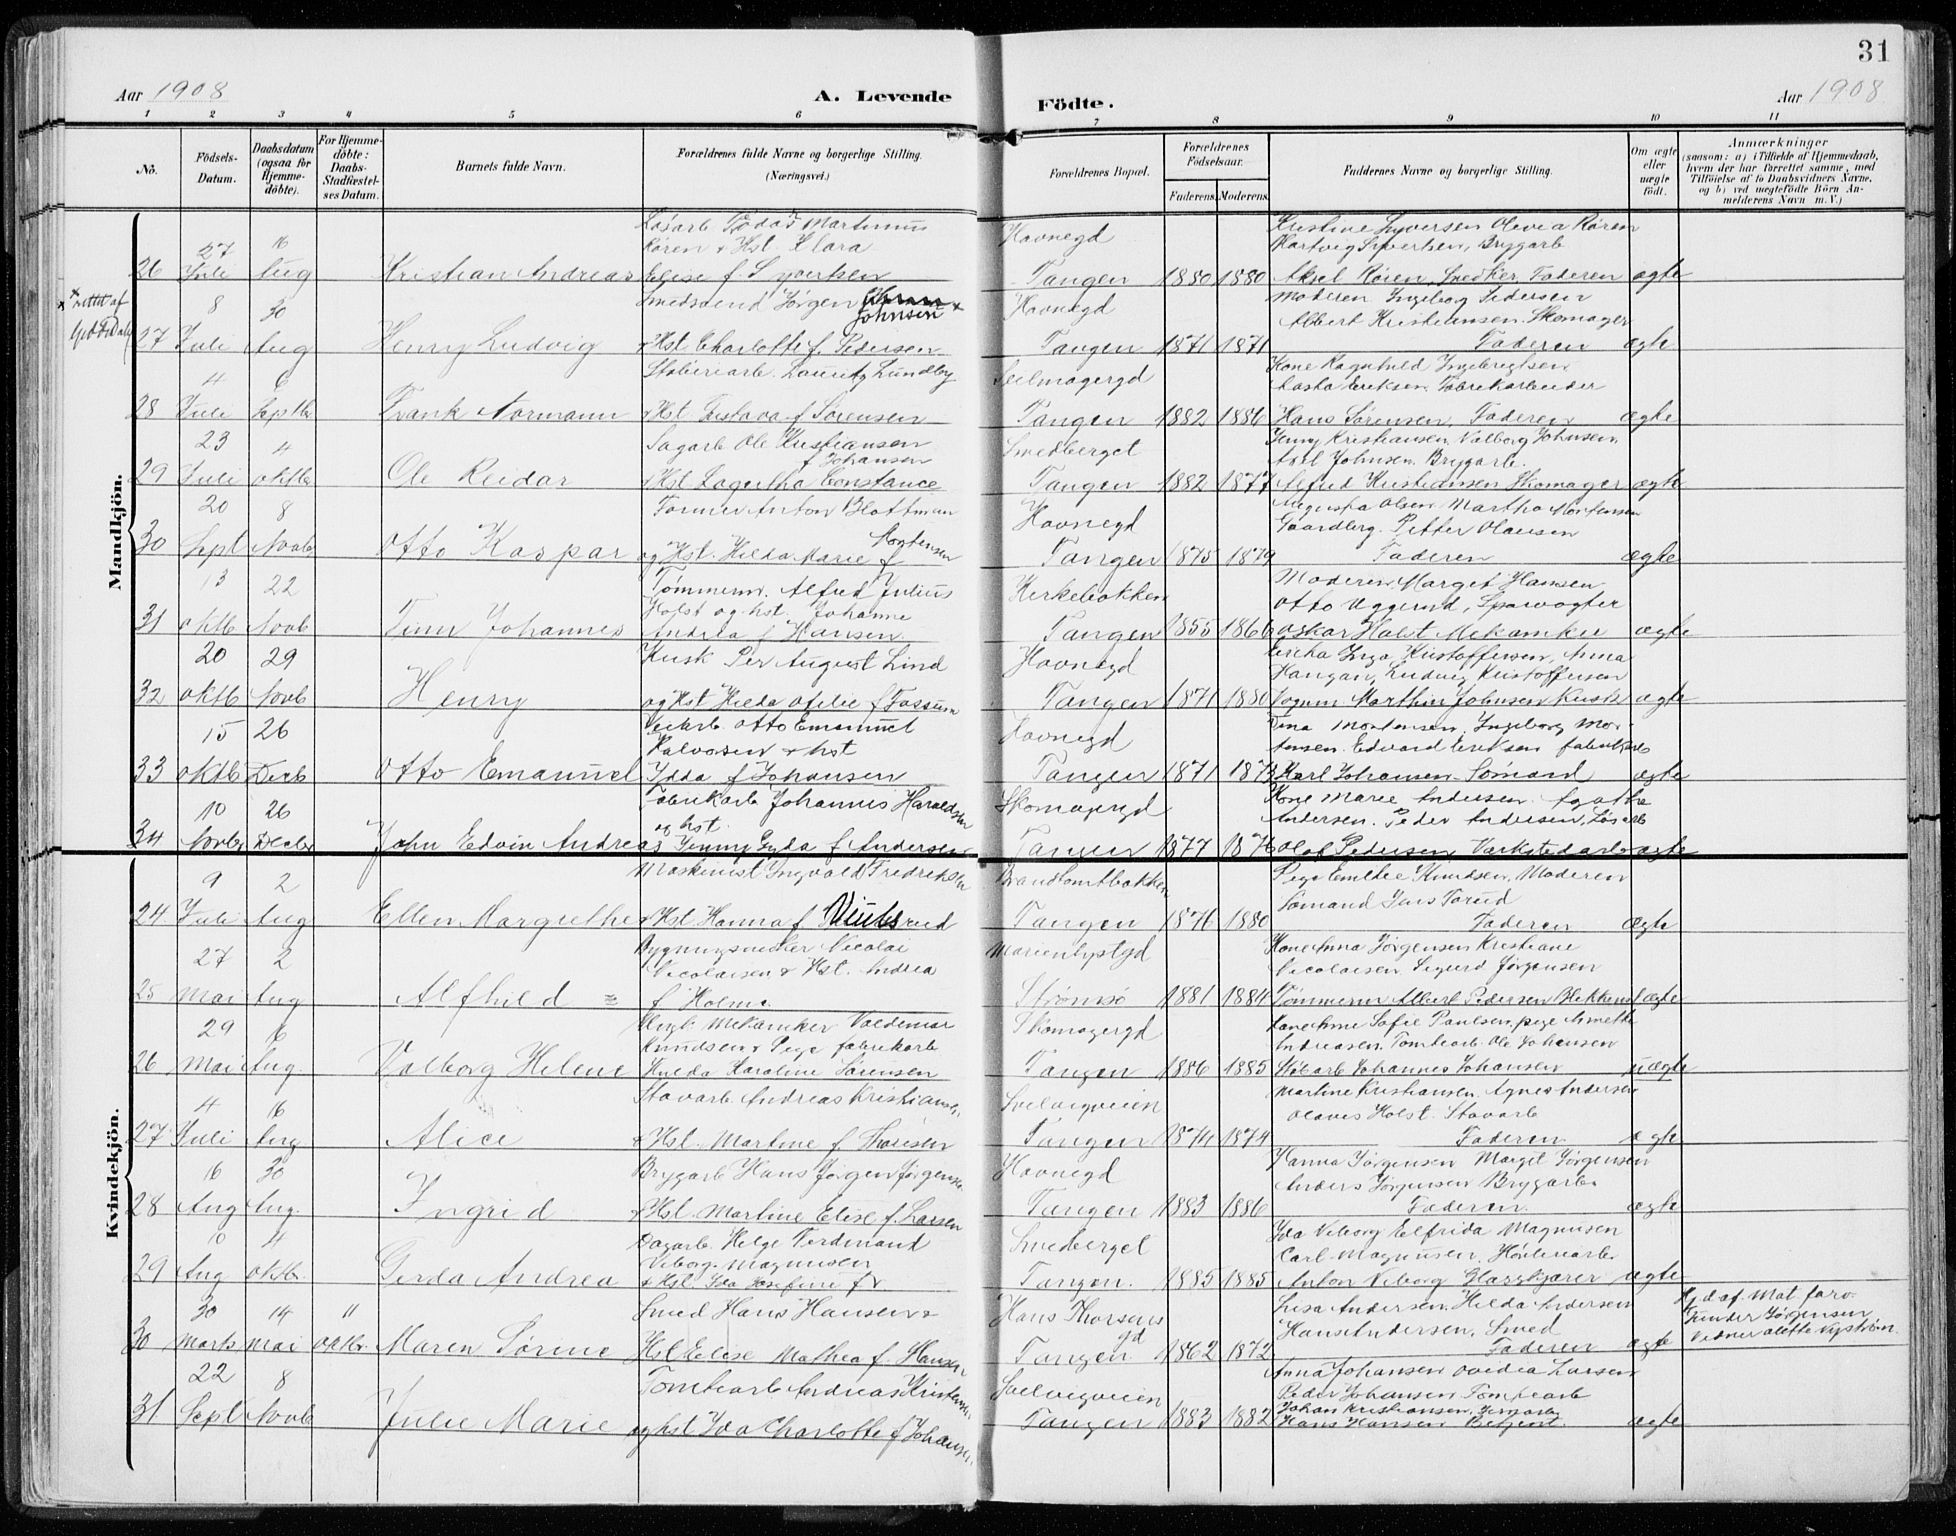 31
Aar 1908
A. Levende
Födte.
Aar 1908
1 2 3 4 5 6 7 8 9 10 11
No.
Födsels-Datum.
Daabsdatum (ogsaa for Hjemme-döbte).
For Hjemme-döbte: Daabs-Stadfæstel-ses Datum.
Barnets fulde Navn.
Forældrenes fulde Navne og borgerlige Stilling.
(Næringsvei.)
Forældrenes Bopæl.
Forældrenes Födselsaar.
Faderens. Moderens.
Faddernes Navne og borgerlige Stilling.
Om ægte eller uægte födt.
Anmærkninger
(saasom: a) i Tilfælde af Hjemmedaab,
hvem der har forrettet samme, med
Tilföielse af to Daabsvidners Navne,
og b) ved uegtefödte Börn An-
melderens Navn m. V.)
Mandkjön.
26 27 Juli 16 Aug Kristian Andreas
Martinus
Røren & Hst. Klara
Elise f. Syvertsen
Havnegd
Tangen 1880 1880
Kristine Syversen Olevia Røren
Hartvig Syvertsen, Bryggarb
Aksel Røren, Snedker, Faderen ægte
rettet af
27 8 Juli 30 Aug Henry Ludvig
Smedsvend Jørgen
Johnsen
& Hst Charlotte f. Pedersen
Havnegd
Tangen 1871 1871
Moderen Ingeborg Pedersen
Albert Kristiansen Skomager
Faderen ægte
28 4 Juli 6 Septbr Frank Normann
Støberiarb. Lauritz Lundby
& Hst. Gustava f Sørensen
Seilmagergd
Tangen 1882 1886
Kone Ragnhild Ingebrigtsen
Eriksen Fabrikarbeider
Hans Sørensen, Faderen ægte
29 23 Juli 4 Oktbr Ole Reidar
Sagarb Ole Kristiansen
f Johansen
& Hst Lagertha Constance
Smedberget
Tangen 1882 1877
Jenny Kristiansen, Valborg Johnsen
Axel Johnsen Bryggarb.
Alfred Kristiansen Skomager ægte
30 20 Sept 8 Novbr Otto Kaspar
Former Anton Blottman
Mortensen
og Hst. Hilda Marie f
Havnegd
Tangen 1875 1879
Augusta Olsen Martha Mortensen
Gaardberg. Petter Olausen
Faderen ægte
31 13 Oktb 22 Novb Finn Johannes
Tømmerm. Alfred Julius
Holst og hst. Johanne
Andrea f Hansen
Kirkebakken
Tangen 1855 1866
Moderen Marget Hansen
Otto Uggerud, Sporvogter
Oskar Holst Mekaniker ægte
32 20 Oktb 29 Novb Henry
Kusk Per August Lind
og Hst Hilda Ofilie f Fossum
Havnegd
Tangen 1871 1880
Inga Kristoffersen, Anna
Haugan, Ludvig Kristoffersen
Marthin Johnsen Kusk ægte
33 15 Oktb 26 Decb Otto Emanuel
Otto Emanuel
Halvorsen & hst
Ydda f Johansen
Havnegd
Tangen 1871 1873
Mortensen, Ingeborg Mor-
tensen. Edvard Eriksen fabrikarb
Karl Johansen Sømand ægte
34 10 Novbr 26 Decbr John Edvin Andreas
Fabrikarb Johannes Haraldsen
og hst.
Jenny Gyda f Andersen
Skomagergd
Tangen 1877 1876
Kone Marie Andersen Agathe
Andersen. Peder Andersen, Løsarb
Olof Pedersen Værkstedarb ægte
Kvindekjön.
24 9 Juli 2 Aug Ellen Margrethe
Maskinist Ingvald Fredriksen
& Hst Hanna f
Brandtomtbakken
Tangen 1876 1880
Pige Emilie Knudsen, Moderen
Sømand Jens Torud
Faderen Ægte
25 27 Mai 2 Aug Alfhild
Bygningssnedker Nicolai
Nicolaisen & Hst. Andrea
f Holms
Marienlystgd
Strømsø 1881 1884
Kone Anna Jørgensen Kristiane
Nicolaisen, Sigurd Jørgensen
Tømmerm Albert Pedersen ægte
26 29 Mai 6 Aug. Valborg Helene
Ungk. Mekaniker Valdemar
Knudsen & Pige fabrikarb
Hulda Karoline Sørensen
Skomagergd
Tangen 1886 1885
Kone Anne Sofie Paulsen, pige Anette
Andreasen, Tomtearb. Ole Johansen
Støbarb Johannes Johansen uægte
27 4 Juli 16 Aug Alice
Stavarb Andreas Kristiansen
& Hst. Martine f Thoresen
Svelvigveien
Tangen 1874 1874
Martine Kristiansen, Agnes Andersen
Olaves Holst. Stavarb
Faderen ægte
28 16 Aug 30 Aug. Ingrid
Bryggarb Hans Jørgen Jørgensen
& Hst. Martine Elise f. Larsen
Havnegd
Tangen 1883 1886
Hanna Jørgensen Marget Jørgensen
Anders Jørgensen Bryggarb.
Faderen ægte
29 10 Aug 4 Oktbr. Gerda Andrea
Dagarb. Helge Ferdinand
Viborg. Magnusen
& Hst. Ida Josefine f
Smedberget
Tangen. 1885 1885
Ida Viborg Elfrida Magnusen
Carl Magnusen, Høvleriarb.
Anton Viborg Glasskjærer ægte
30 30 Marts 14 Mai 11 Oktbr. Maren Sørine
Smed Hans Hansen &
Hst Elise Mathea f. Hansen
Hans Thorsens gd
Tangen 1862 1872
Lisa Andersen, Hilda Andersen
Hans Andersen, Smed
Faderen ægte
Hjd. af Mat.
Gunder Jørgensen
Vidner Olette Nystrøm
31 22 Sept 8 Novb Julie Marie
Tomtearb Andreas Kristensen
og hst Ida Charlotte f Johansen
Svelvigveien
Tangen 1883 1882
Anna Johansen Ovidia Larsen
Peder Johansen Tomtearb
Johan Kristiansen, Jernarb.
Hans Hansen Betjent. ægte